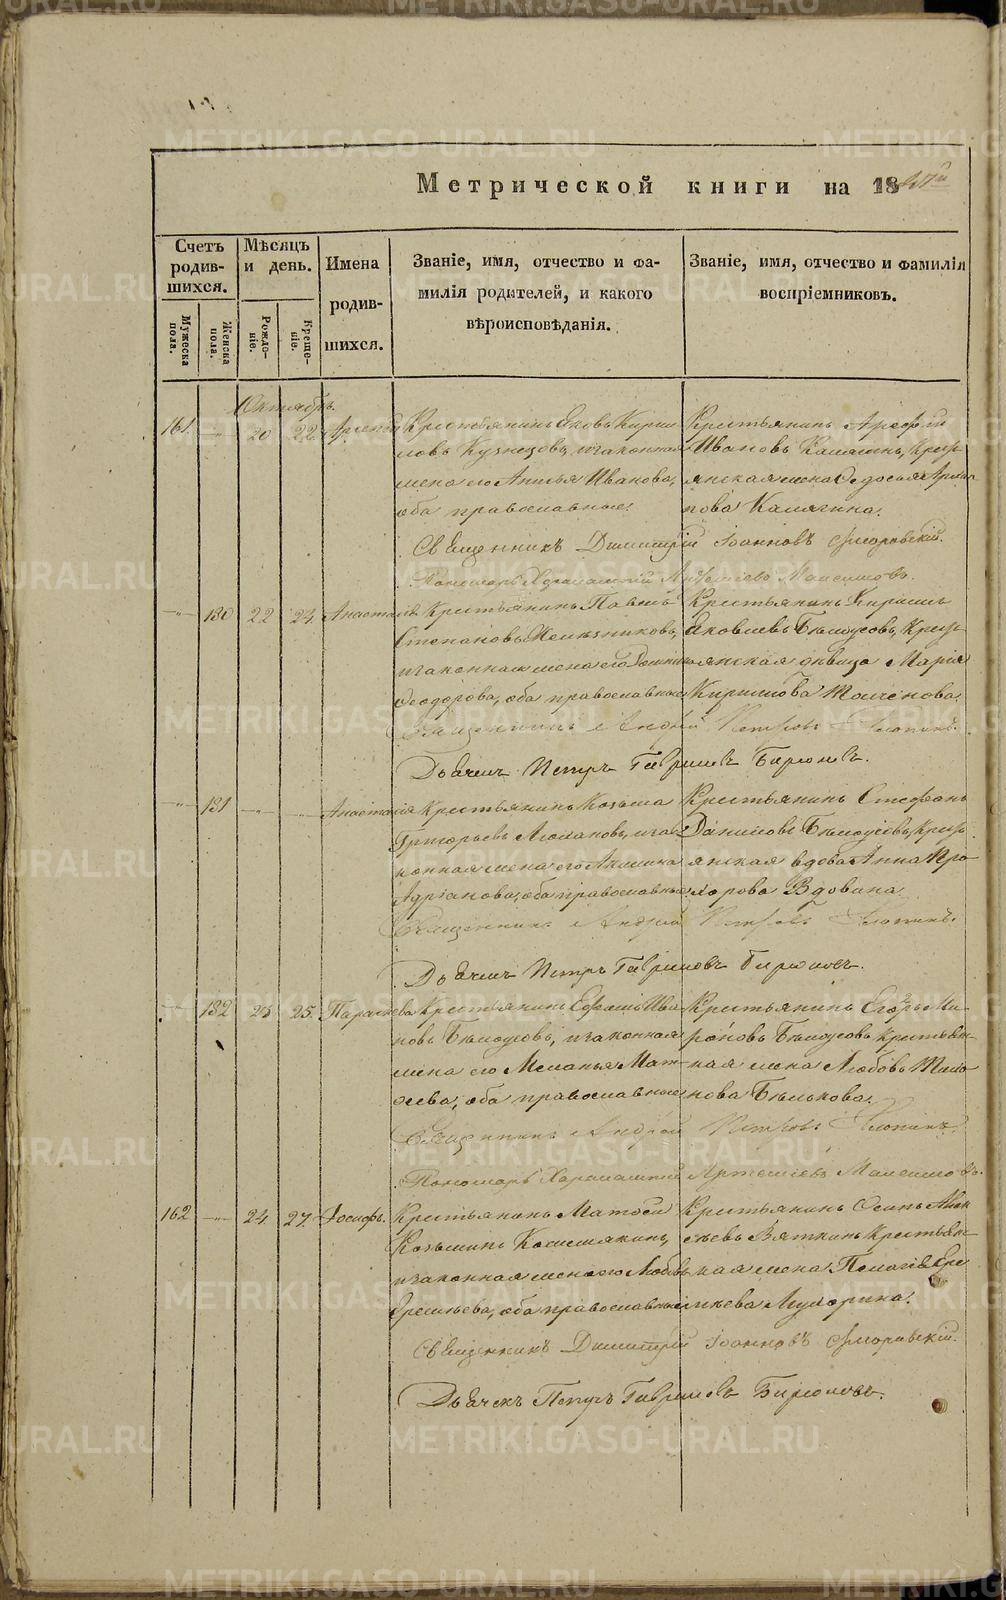 Метрической книги на 1847й
Счетъ родившихся.
Мужеска пола.
Женска пола.
Мѣсяцъ и день.
Рожденіе.
Крещеніе.
Имена родившихся.
Званіе, имя, отчество и фамилія родителей, и какого вѣроисповѣданія.
Званіе, имя, отчество и фамилія воспріемниковъ.
Октябрь.
161. 20 22
Крестьянинъ Яковъ Кирил
ловъ Кузнецовъ, и законная
жена его Иванова,
оба православные.
Крестьянинъ Арефій
Ивановъ Калягинъ, Крест
янская жена Ѳедосья Архи
пова Калягина.
Священникъ Димитрій Іоанновъ
Пономарь Харалампій Артеміевъ Максимовъ.
130 22 24 Анастасія
Крестьянинъ Павелъ
Степановъ Мельниковъ,
и законная жена его
Ѳеодорова, оба православные
Крестьянинъ Кирилъ
Яковлевъ Бѣлоусовъ, Крест
янская дѣвица Марія
Кирилова
Священникъ Андрей Петровъ
Дьячекъ Петръ Гавриловъ Бирюковъ.
131 Анастасія
Крестьянинъ Козьма
Григорьевъ и за
конная жена его Акилина
Адріанова, оба православные
Крестьянинъ Стефанъ
Даниловъ Бѣлоусовъ, Крест
янская вдова Анна Про
хорова Вдовина
Священникъ Андрей Петровъ
Дьячекъ Петръ Гавриловъ Бирюковъ.
132 23 25. Параскева
Крестьянинъ Ефремъ Ива
новъ Бѣлоусовъ, и законная
жена его Меланья Мат
ѳеева, оба православные
Крестьянинъ Егоръ Ми
роновъ Бѣлоусовъ, крестьян
ская жена Любовь Тимо
Бѣлькова.
Священникъ Андрей Петровъ
Пономарь Харалампій Артеміевъ Максимовъ.
162 24. 27. Іосифъ.
Крестьянинъ Матѳей
Козьминъ
и законная жена его Любовь
Еремѣева, оба православные
Крестьянинъ Осипъ Алек
сѣевъ Вяткинъ, Крестьян
ская жена Пелагія Ере
мѣева
Священникъ Димитрій Іоанновъ
Дьячекъ Петръ Гавриловъ Бирюковъ.
METRIKI.GASO-URAL.RU